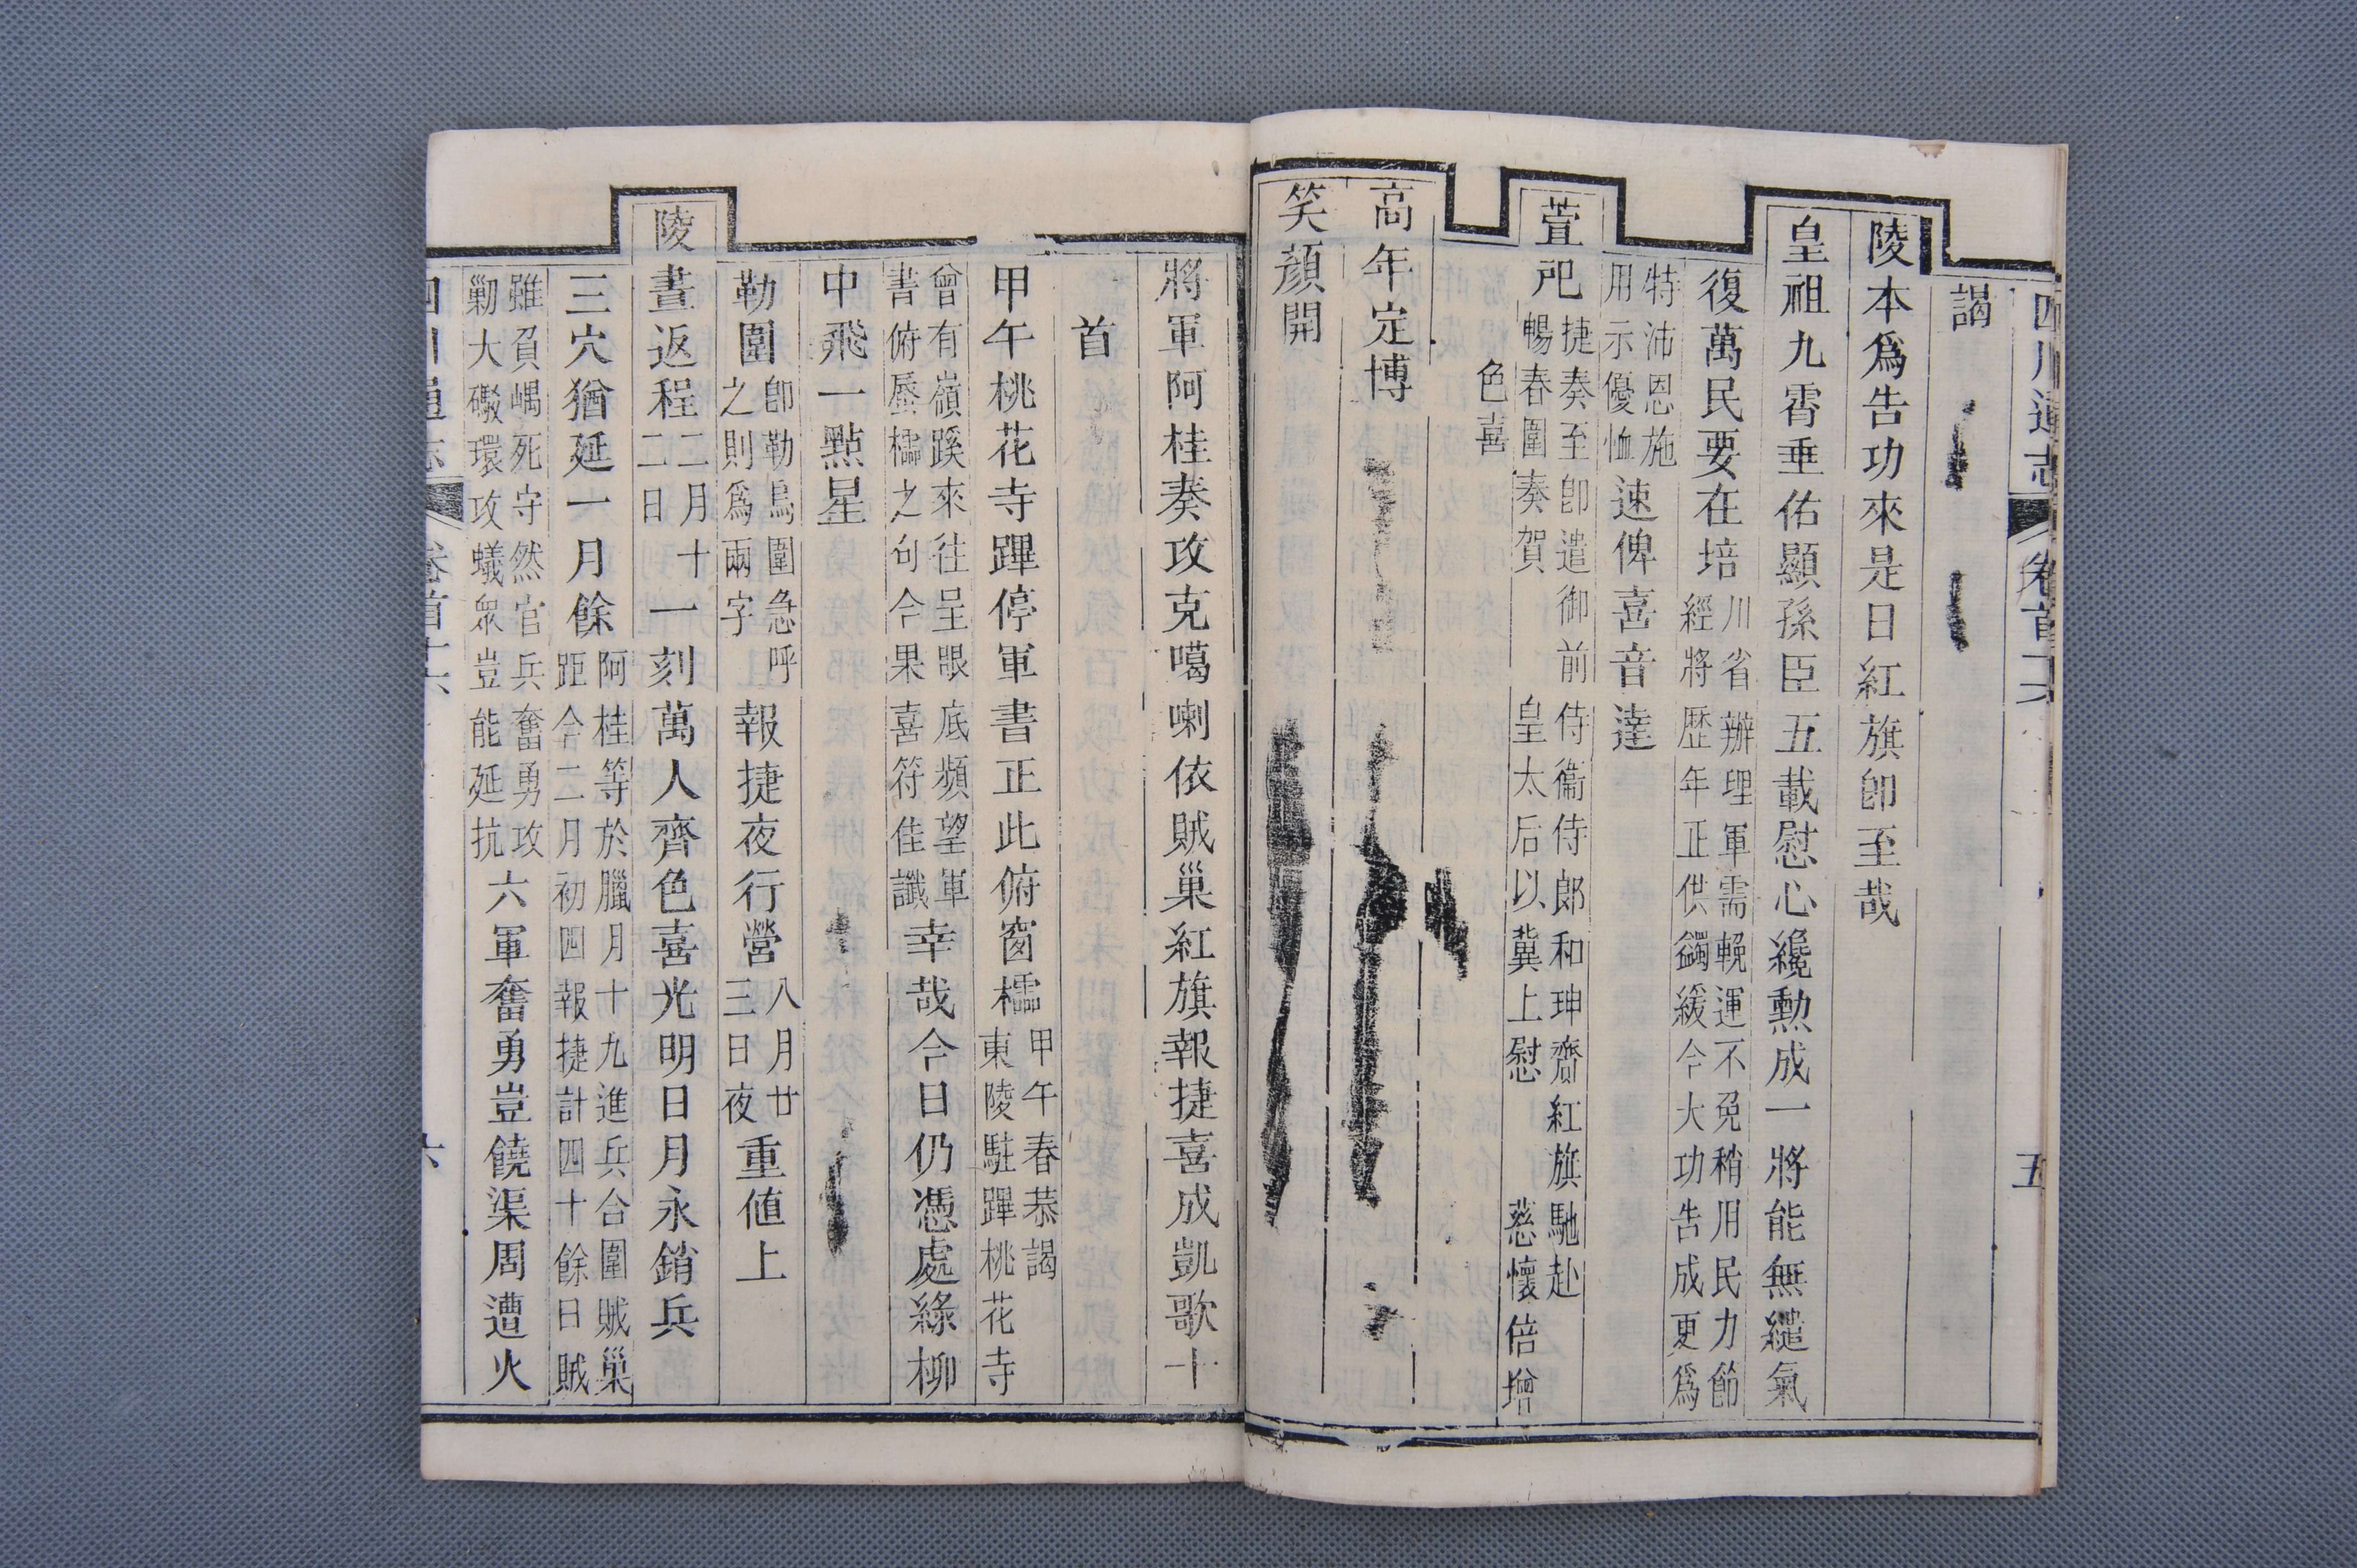 四川通志 卷首之六 五
謁
陵本為告功來是日紅旗卽至哉
皇祖九霄垂佑顯孫臣五載慰心纔勲成一將能無繾氣
復萬民要在培川省辦理軍需輓運不免稍用民力節
經將歷年正供蠲緩今大功告成更為
特沛恩施
用示優恤速俾喜音達
萱戺捷奏至卽遣御前侍衞侍郎和珅齎紅旗馳赴
暢春園奏賀皇太后以冀上慰慈懷倍增
色喜
高年定博
笑顔開
將軍阿桂奏攻克噶喇依賊巢紅旗報捷喜成凱歌十
首
甲午桃花寺蹕停軍書正此俯窗櫺甲午春恭謁
東陵駐蹕桃花寺
曾有嶺蹊來往呈眼底頻望軍
書俯蜃櫺之句今果喜符佳讖幸哉今日仍憑處綠柳
中飛一點星
勒圍卽勒烏圍急呼
之則爲兩字報捷夜行營八月廿
三日夜重値上
陵晝返程二月十
二日一刻萬人齊色喜光明日月永銷兵
三穴猶延一月餘阿桂等於臘月十九進兵合圍賊巢
距今二月初四報捷計四十餘日賊
雖負嵎死守然官兵奮勇攻
剿大礮環攻蟻衆豈能延抗六軍奮勇豈饒渠周遭火
六